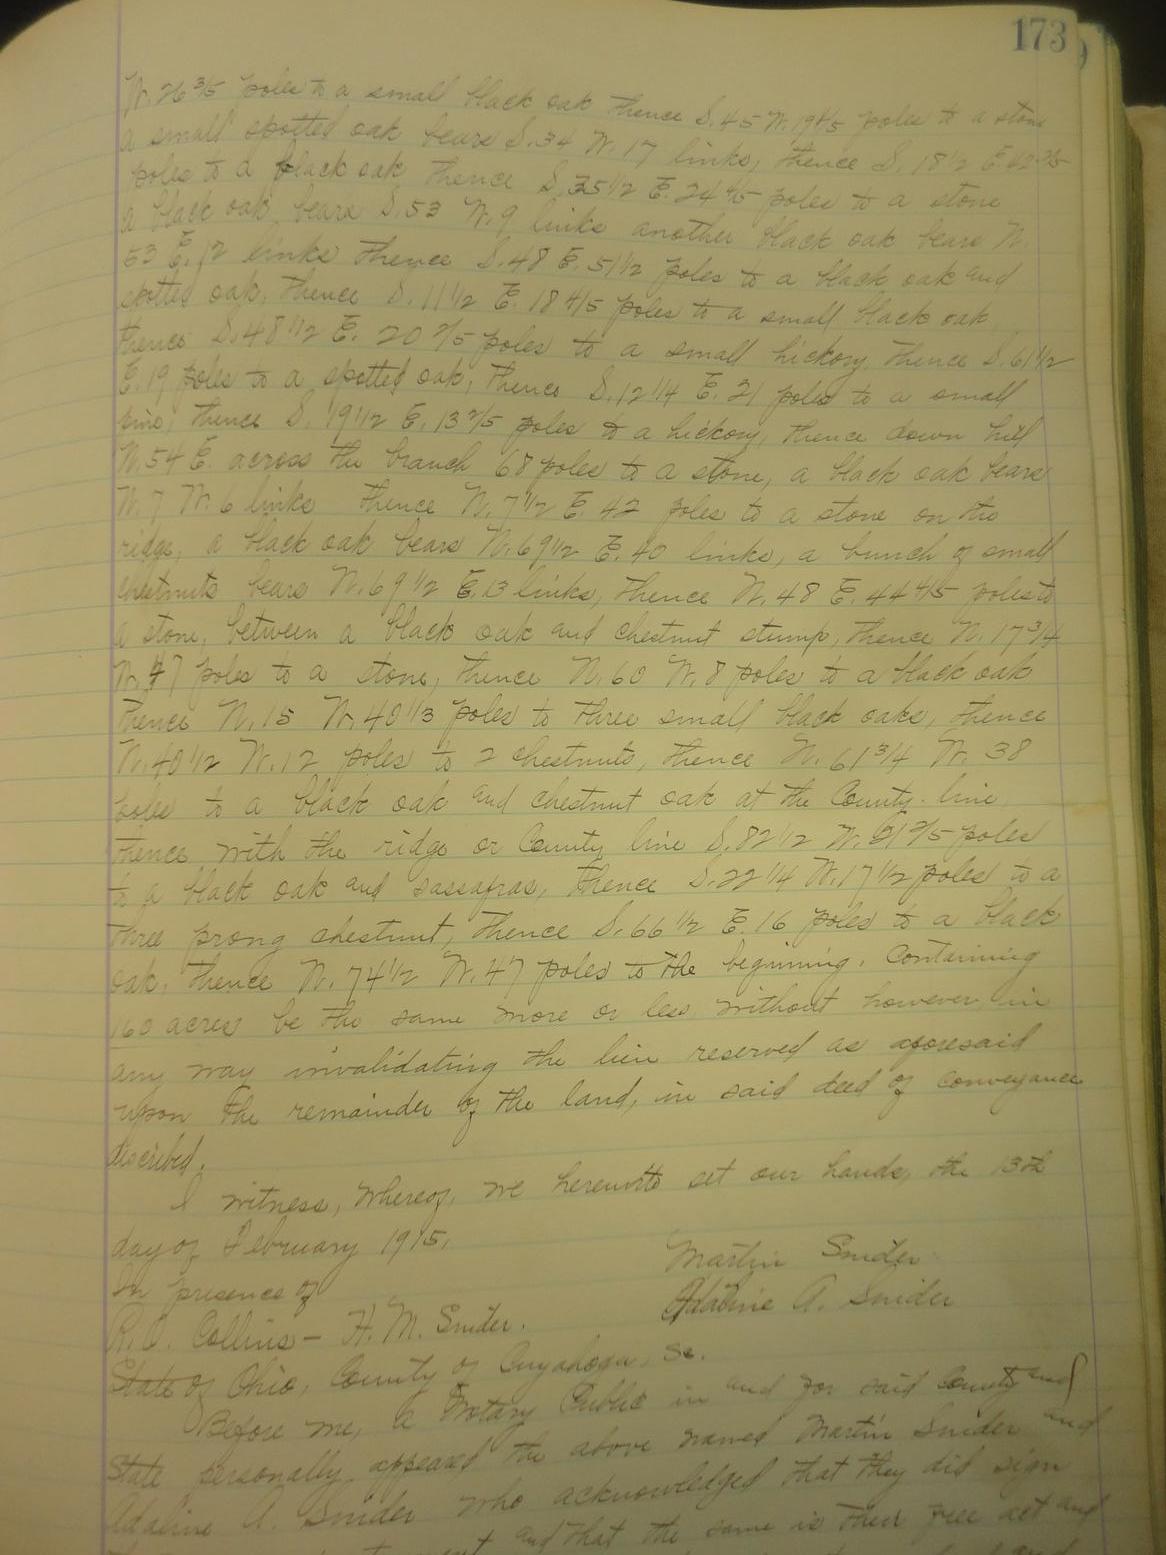 173
W. 26 3/5 poles to a small black oak thence S. 45 W. 19 4/5 poles to a stone
a small spotted oak bears S. 34 W. 17 links, thence S. 18 1/2 E. 42 2/5
poles to a black oak thence S. 35 1/2 E. 24 4/5 poles to a stone
a black oak bears S. 53 W. 9 links another black oak bears N.
53 E. 12 links thence S. 48 E. 51 1/2 poles to a black oak and
spotted oak, thence S. 11 1/2 E. 18 4/5 poles to a small black oak
thence S. 48 1/2 E. 20 2/5 poles to a small hickory thence S. 61 1/2
E. 19 poles to a spotted oak, thence S. 12 1/4 E. 21 poles to a small
pine, thence S. 19 1/2 E. 13 2/5 poles to a hickory, thence down hill
N. 54 E. across the branch 68 poles to a stone, a black oak bears
N. 7 W. 6 links thence N. 7 1/2 E. 42 poles to a stone on the
ridge, a black oak bears N. 69 1/2 E. 40 links, a bunch of small
chestnuts bears N. 69 1/2 E. 13 links, thence N. 48 E. 44 4/5 poles to
a stone, between a black oak and chestnut stump, thence N. 17 3/4
W. 47 poles to a stone, thence N. 60 W. 8 poles to a black oak
thence N. 15 W. 40 1/3 poles to three small black oaks, thence
N. 40 1/2 W. 12 poles to 2 chestnuts, thence N. 61 3/4 W. 38
poles to a black oak and chestnut oak at the County line
thence with the ridge or County line S. 82 1/2 W. 21 2/5 poles
to a black oak and sassafras, thence S. 22 1/4 W. 17 1/2 poles to a
three prong chestnut, thence S. 66 1/2 E. 16 poles to a black
oak, thence N. 74 1/2 W. 47 poles to the beginning. Containing
160 acres be the same more or less without however in
any way invalidating the lien reserved as aforesaid
upon the remainder of the land, in said deed of conveyance
discribed.
I witness, whereof, we hereunto set our hands, the 13th
day of February 1915.
Martin Snider
In presence of
Adaline A. Snider
R. O. Collins - H. M. Snider.
State of Ohio, County of Cuyahoga, Sc.
Before me, a Notary Public in and for said County and
State personally appeared the above named Martin Snider and
Adaline A. Snider who acknowledged that they did sign
and that the same is their free act and